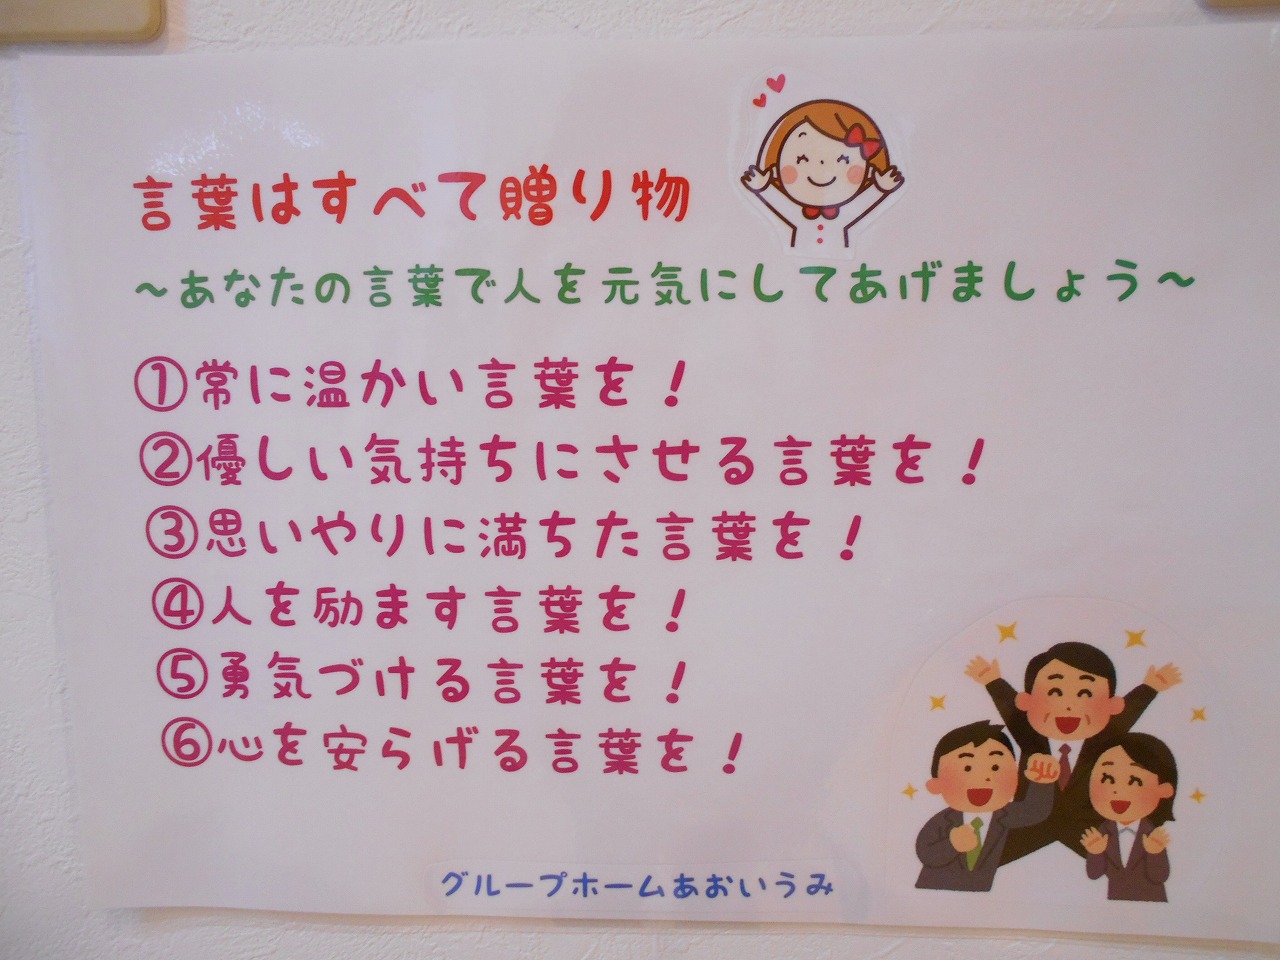 言葉はすべて贈り物
～あなたの言葉で人を元気にしてあげましょう～
①常に温かい言葉を！
②優しい気持ちにさせる言葉を！
③思いやりに満ちた言葉を！
④人を励ます言葉を！
⑤勇気づける言葉を！
⑥心を安らげる言葉を！
グループホームあおいうみ